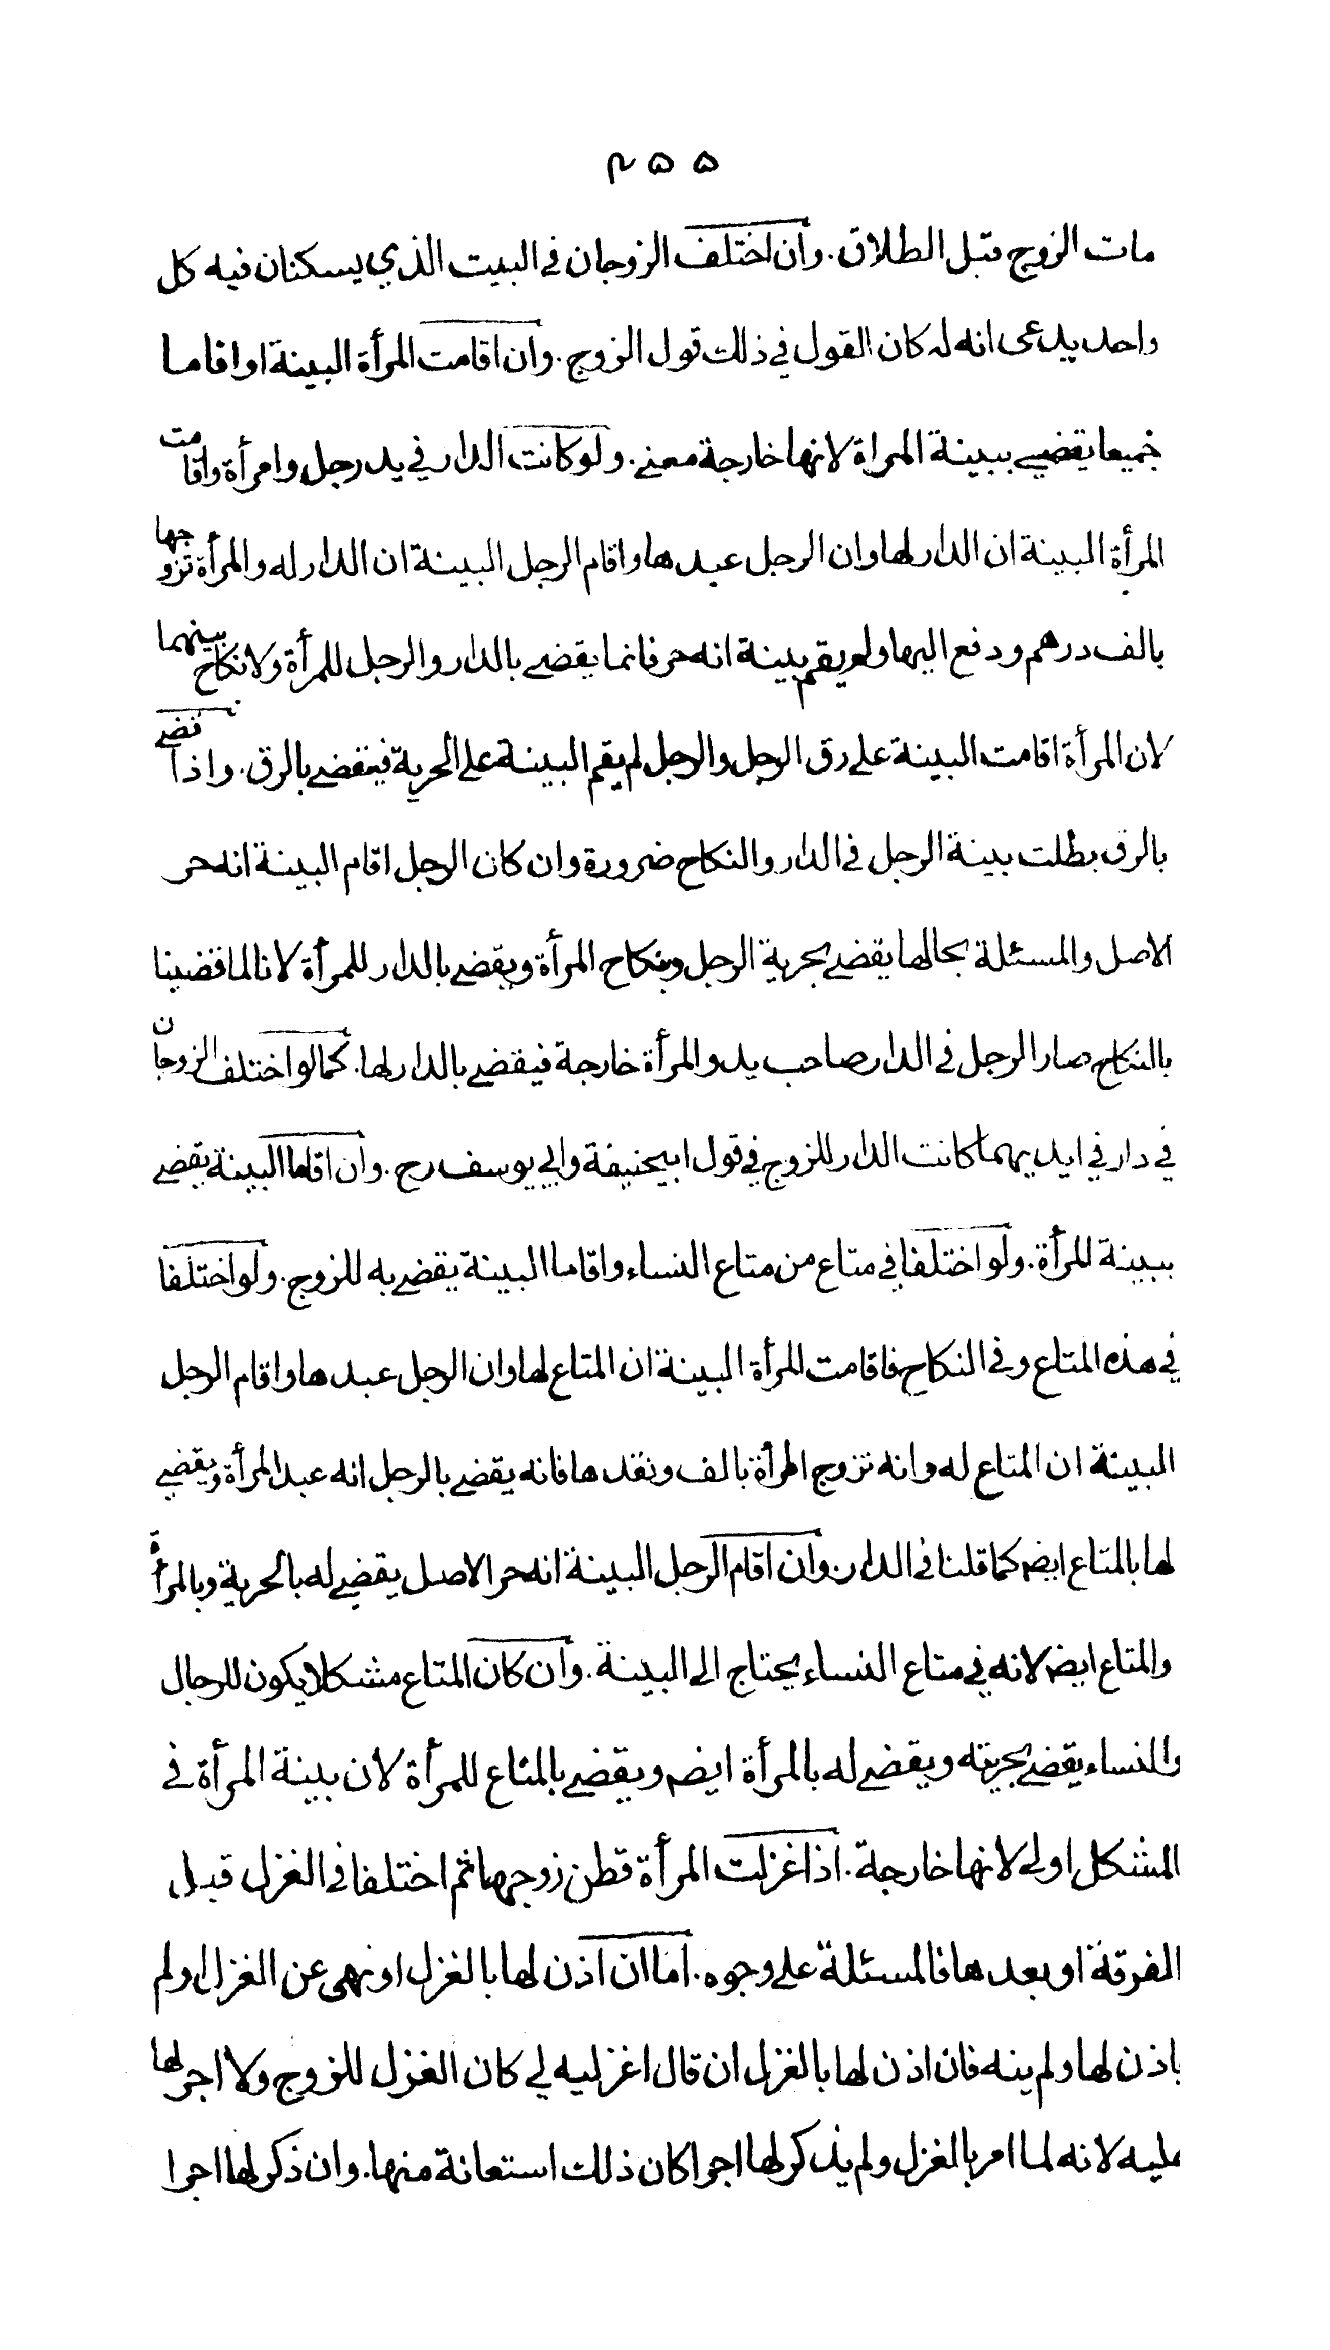 ۴۵۵
مات الزوج قبل الطلاق. وان اختلف الزوجان في البيت الذي يسكنان فيه كل
واحد يدعى انه له كان القول في ذلك قول الزوج. وان اقامت المرأة البينة او اقاما
جميعا يقضي ببينة المراة لانها خارجة معنى. ولو كانت الدار في يد رجل وامرأة واقامت
المرأة البينة ان الدار لها وان الرجل عبدها واقام الرجل البينة ان الدار له والمرأة تزوجها
بالف درهم ودفع اليها ولم يقم بينة انه حر فانما يقضى بالدار والرجل للمرأة ولا نكاح بينهما
لان المرأة اقامت البينة على رق الرجل والرجل لم يقم البينة على الحرية فيقضى بالرق. واذا قضى
بالرق بطلت بينة الرجل في الدار والنكاح ضرورة وان كان الرجل اقام البينة انه حر
الاصل والمسئلة بحالها يقضى بحرية الرجل وبنكاح المرأة ويقضى بالدار للمرأة لانا لما قضينا
بالنكاح صار الرجل في الدار صاحب يد والمرأة خارجة فيقضى بالدار لها. كما لو اختلف الزوجان
في دار في ايديهما كانت الدار للزوج في قول ابيحنيفة وابي يوسف رح. وان اقاما البينة يقضى
ببينة المرأة. ولو اختلفا في متاع من متاع النساء واقاما البينة يقضى به للزوج. ولو اختلفا
في هذه المتاع وفي النكاح فاقامت المرأة البينة ان المتاع لها وان الرجل عبدها واقام الرجل
البينة ان المتاع له وانه تزوج المرأة بالف ونقدها فانه يقضى بالرجل انه عبد المرأة ويقضي
لها بالمتاع ايضا كما قلنا في الدار. وان اقام الرجل البينة انه حر الاصل يقضي له بالحرية وبالمرأة
والمتاع ايضا لانه في متاع النساء يحتاج الى البينة. وان كان المتاع مشكلا يكون للرجال
والنساء يقضى بحريته ويقضى له بالمرأة ايضا ويقضى بالمتاع للمرأة لان بينة المرأة في
المشكل اولى لانها خارجة. اذا غزلت المرأة قطن زوجها ثم اختلفا في الغزل قبل
الفرقة او بعدها فالمسئلة على وجوه. اما ان اذن لها بالغزل او نهى عن الغزل او لم
ياذن لها ولم ينه فان اذن لها بالغزل ان قال اغزليه لي كان الغزل للزوج ولا اجر لها
عليه لانه لما امر بالغزل ولم يذكر لها اجرا كان ذلك استعانة منها. وان ذكر لها اجرا